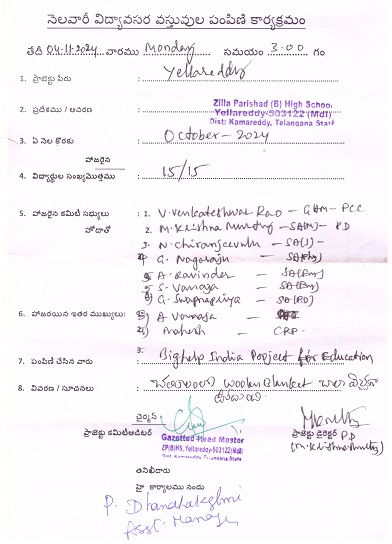 నెలవారీ విద్యావసర వస్తువుల పంపిణి కార్యక్రమం
తేదీ 04.11.2024 వారము Monday సమయం 3.00 గం
1. ప్రాజెక్టు పేరు : Yellareddy
2. ప్రదేశము / ఆవరణ : Zilla Parishad (B) High School
Yellareddy-503122 (Mdl)
Dist: Kamareddy, Telangana State
3. ఏ నెల కొరకు : October - 2024
హాజరైన
4. విద్యార్థుల సంఖ్యమొత్తము : 15/15
5. హాజరైన కమిటి సభ్యులు : 1. V. Venkateshwar Rao - GHM - PCC
హోదాతో 2. M. Krishna Murthy - SA(M) - PD
3. N. Chiranjeevulu - SA(S) -
4) G. Nagaraju - SA(
5) A. Ravinder - SA(
6) S. Vanaja - SA(
G. Swapnapriya - SA(
6. హాజరయిన ఇతర ముఖ్యులు: 1) A Vanaja
2) Mahesh - CRP.
3.
7. పంపిణి చేసిన వారు : Bighelp India Project for Education
8. వివరణ / సూచనలు : woolen blanket బాగా
చైర్మన్
ప్రాజెక్టు కమిటిఆడిటర్
Gazetted Head Master
ZP(B)HS, Yellareddy-503122(Mdl)
Dist. Kamareddy, Telangana State
ప్రాజెక్టు డైరెక్టర్ P.D
(M. Krishna Murthy)
తనిఖీదారు
హై కార్యాలము నందు
P. Dhanalakshmi
Asst. Manager